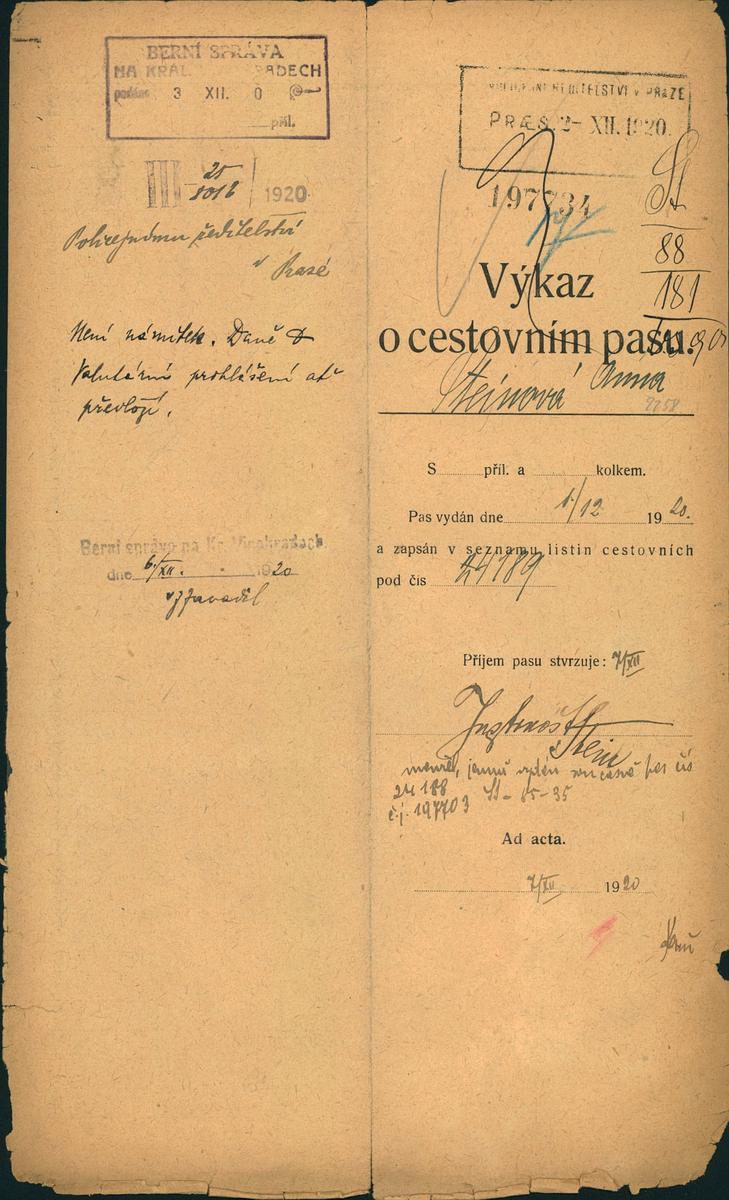 BERNÍ SPRÁVA
NA KRÁL. RADECH
podáno 3 XII. 0
příl.
III 25
1920
Policejnímu ředitelství
v Praze
Není námitek. Daně
valutární prohlášení ať
předloží.
Berní správa na Kr. Vinohradech
dne 6/XII. 1920
ŘEDITELSTVÍ V PRAZE
PRÆS 2- XII. 1920.
197734
St
88
181
Výkaz
o cestovním pasu.
Steinová Anna
S příl. a kolkem.
Pas vydán dne 1/12 1920.
a zapsán v seznamu listin cestovních
pod čís 24189
Příjem pasu stvrzuje: 7/XII
Stein
jemuž vydán současně pas čís
24188 St-85-35
č.j. 197703
Ad acta.
7/XII 1920